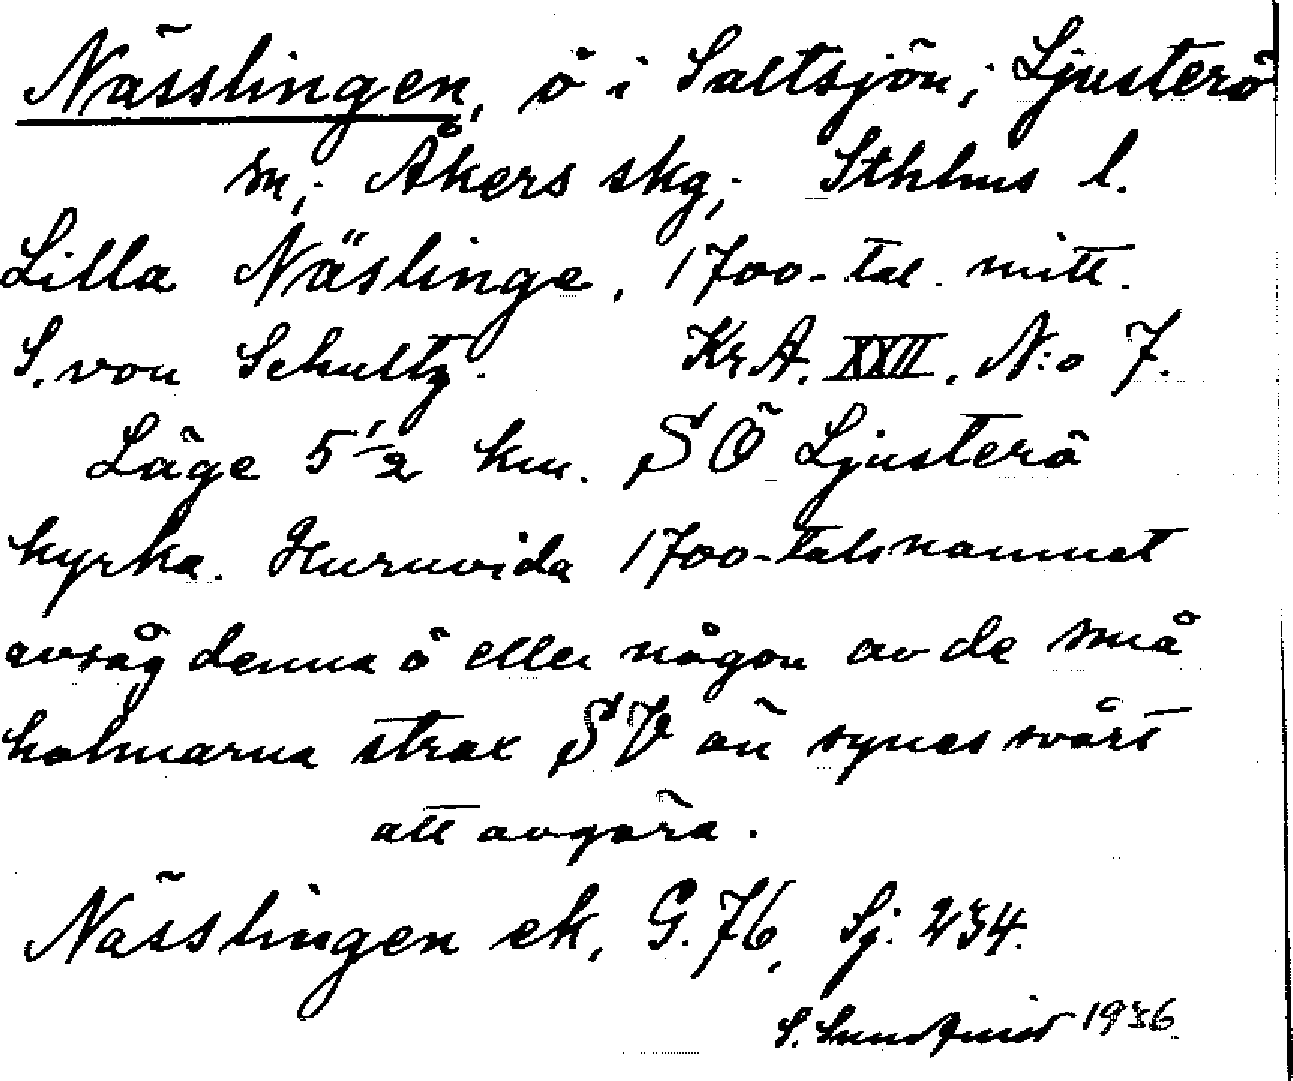 Nässlingen, ö i Saltsjön; Ljusterö
sn; Åkers skg; Sthlms l.
Lilla Näslinge, 1700-tal. mitt.
S. von Schultz. Kr.A. XXII. N:o 7.
Läge 5 1/2 km. SÖ Ljusterö
kyrka. Huruvida 1700-talsnamnet
avsåg denna ö eller någon av de små
holmarna strax SV ön synes svårt
att avgöra.
Nässlingen ek. G.76, Sj. 234.
S. Sundqvist 1936